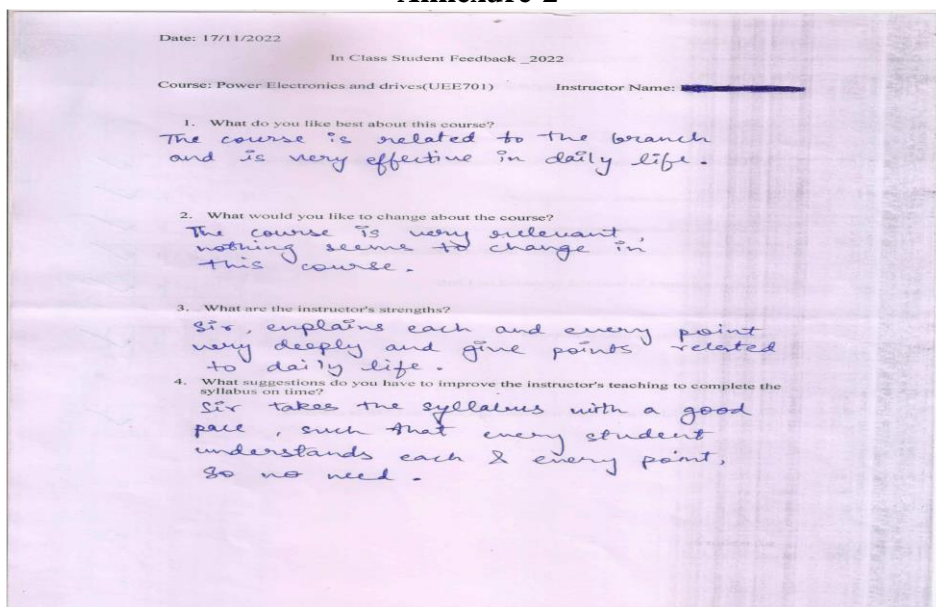 Annexure-2
Date: 17/11/2022
In Class Student Feedback _2022
Course: Power Electronics and drives(UEE701) Instructor Name:
1. What do you like best about this course?
The course is related to the branch
and is very effective in daily life.
2. What would you like to change about the course?
The course is very relevant,
nothing seems to change in
this course.
3. What are the instructor's strengths?
Sir, enplains each and every point
very deeply and give points related
to daily life.
4. What suggestions do you have to improve the instructor's teaching to complete the
syllabus on time?
Sir takes the syllabus with a good
pace, such that every student
understands each & every point,
so no need.